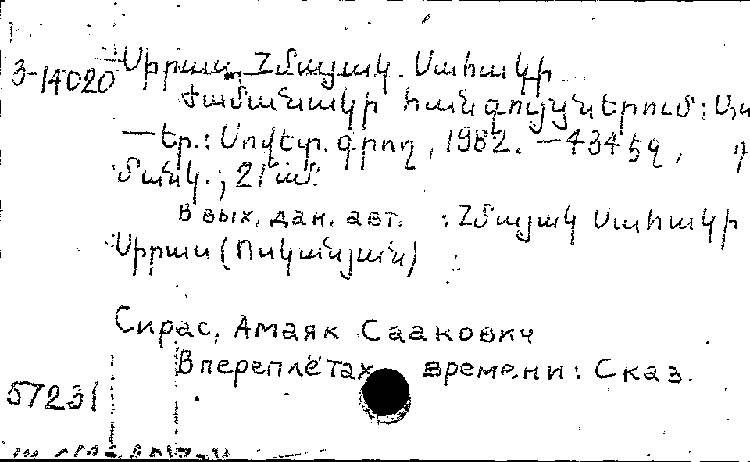 3-14020 Սիրաս, Հմայակ Սահակի
Ժամանակի հանգույցներում:
— Եր.: Սովետ. գրող, 1982. — 434 էջ,
մանկ.; 21 սմ.
В вых. дан. авт. : Հմայակ Սահակի
Սիրաս (Ոսկանյան)
Сирас, Амаяк Саакович
В переплётах времени: Сказ.
57231